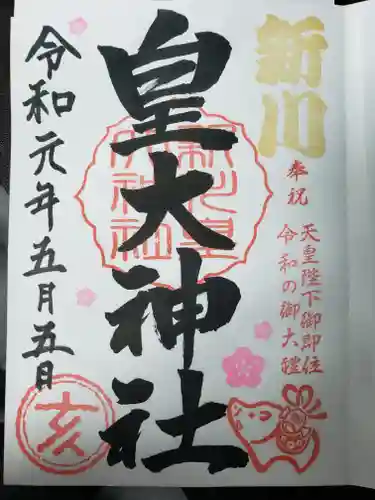 新川
奉祝
天皇陛下御即位
令和の御大禮
皇大神社
新川皇大神社
令和元年五月五日
亥